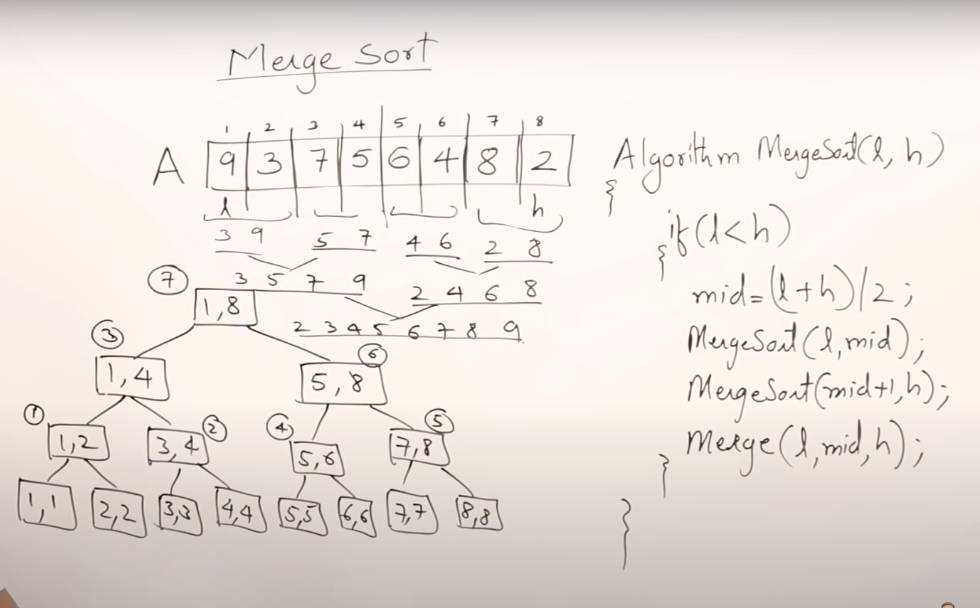 Merge Sort
1 2 3 4 5 6 7 8
A 9 3 7 5 6 4 8 2
l h
3 9 5 7 4 6 2 8
3 5 7 9 2 4 6 8
2 3 4 5 6 7 8 9
7 1,8
3 1,4 6 5,8
1 1,2 3,4 2 4 5,6 5 7,8
1,1 2,2 3,3 4,4 5,5 6,6 7,7 8,8
Algorithm MergeSort(l, h)
{
if(l<h)
{
mid=(l+h)/2;
MergeSort(l,mid);
MergeSort(mid+1,h);
Merge(l,mid,h);
}
}